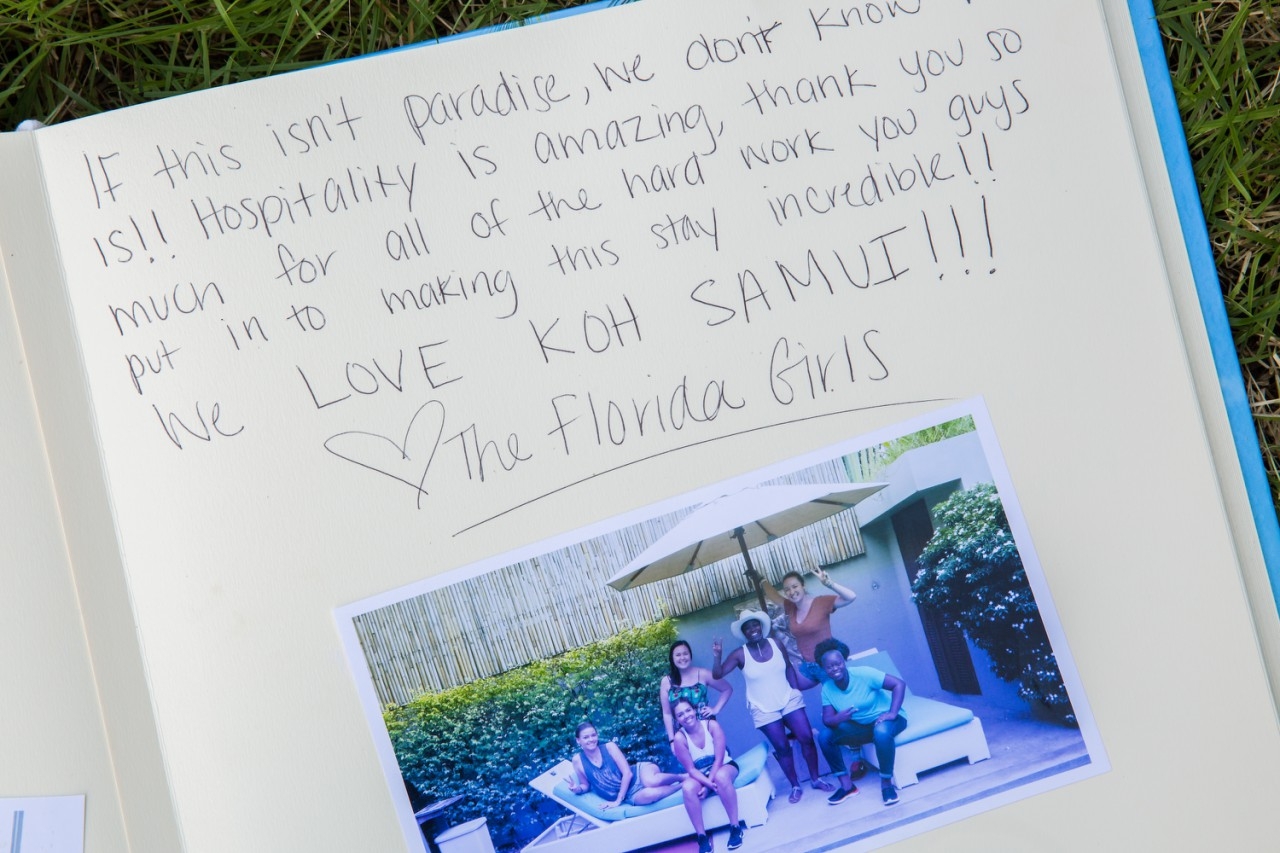 IF this isn't paradise, we don't know
is!! Hospitality is amazing, thank you so
much for all of the hard work you guys
put in to making this stay incredible!!
We LOVE KOH SAMUI!!!
The Florida Girls